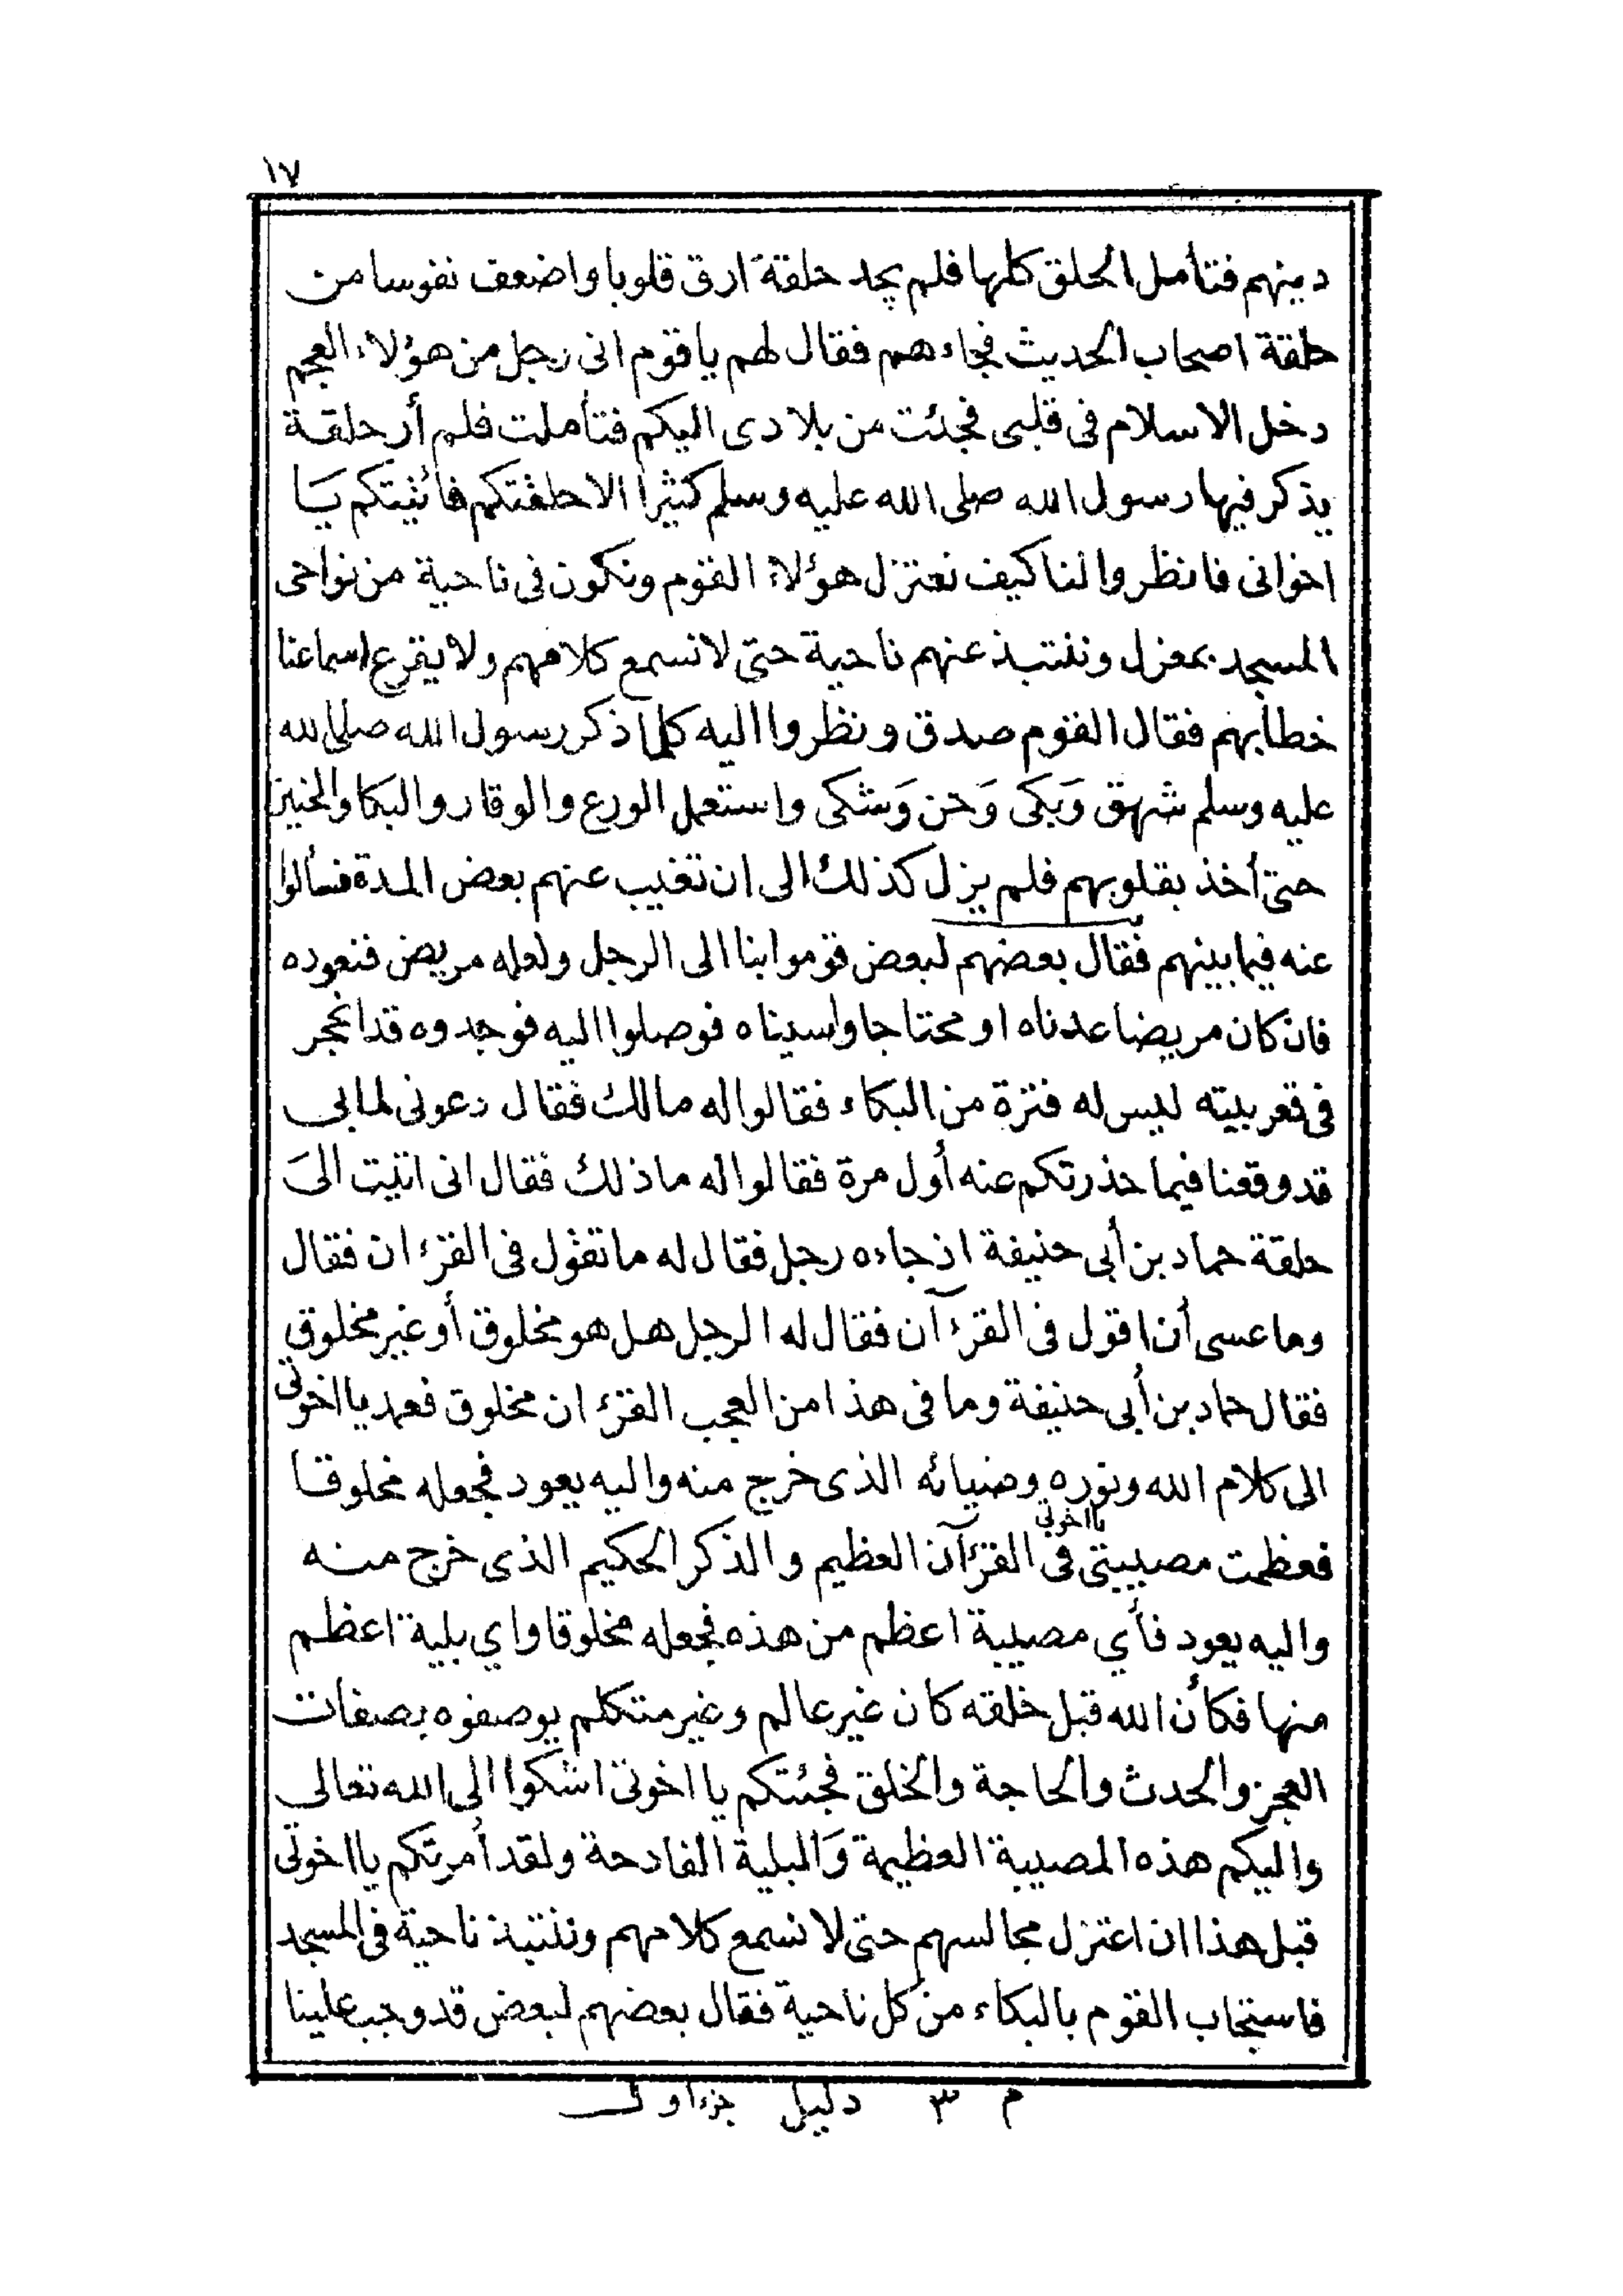 ١٧
دينهم فتأمل الحلق كلها فلم يجد حلقة ارق قلوبا واضعف نفوسا من
حلقة اصحاب الحديث فجاءهم فقال لهم يا قوم انى رجل من هؤلاء العجم
دخل الاسلام فى قلبى فجئت من بلادى اليكم فتأملت فلم أر حلقة
يذكر فيها رسول الله صلى الله عليه وسلم كثيرا الا حلقتكم فأتيتكم يا
اخوانى فانظروا لنا كيف نعتزل هؤلاء القوم ونكون فى ناحية من نواحى
المسجد بمعزل وننتبذ عنهم ناحية حتى لا نسمع كلامهم ولا يقرع اسماعنا
خطابهم فقال القوم صدق ونظروا اليه كلما ذكر رسول الله صلى الله
عليه وسلم شهق وَبكى وَحن وَشكى واستعمل الورع والوقار والبكا والحنين
حتى أخذ بقلوبهم فلم يزل كذلك الى ان تغيب عنهم بعض المدة فسألوا
عنه فيما بينهم فقال بعضهم لبعض قوموا بنا الى الرجل ولعله مريض فنعوده
فان كان مريضا عدناه او محتاجا واسيناه فوصلوا اليه فوجدوه قد انجحر
فى قعر بيته ليس له فترة من البكاء فقالوا له مالك فقال دعونى لما بى
قد وقعنا فيما حذرتكم عنه أول مرة فقالوا له ما ذلك فقال انى اتيت الىَ
حلقة حماد بن أبى حنيفة اذ جاءه رجل فقال له ما تقول فى القرءان فقال
وما عسى أن اقول فى القرءآن فقال له الرجل هل هو مخلوق أو غير مخلوق
فقال حماد بن أبى حنيفة وما فى هذا من العجب القرءان مخلوق فعمد يا اخوتى
الى كلام الله ونوره وضيائه الذى خرج منه واليه يعود فجعله مخلوقا
فعظمت مصيبتى يا اخوتى فى القرءآن العظيم والذكر الحكيم الذى خرج منه
واليه يعود فأي مصيبة اعظم من هذه فجعله مخلوقا واي بلية اعظم
منها فكأن الله قبل خلقه كان غير عالم وغير متكلم يوصفوه بصفات
العجز والحدث والحاجة والخلق فجئتكم يا اخوتى اشكوا الى الله تعالى
واليكم هذه المصيبة العظيمة وَالبلية الفادحة ولقد أمرتكم يا اخوتى
قبل هذا ان اعتزل مجالسهم حتى لا نسمع كلامهم وننتبذ ناحية فى المسجد
فاستجاب القوم بالبكاء من كل ناحية فقال بعضهم لبعض قد وجب علينا
م ٣ دليل جزء اول